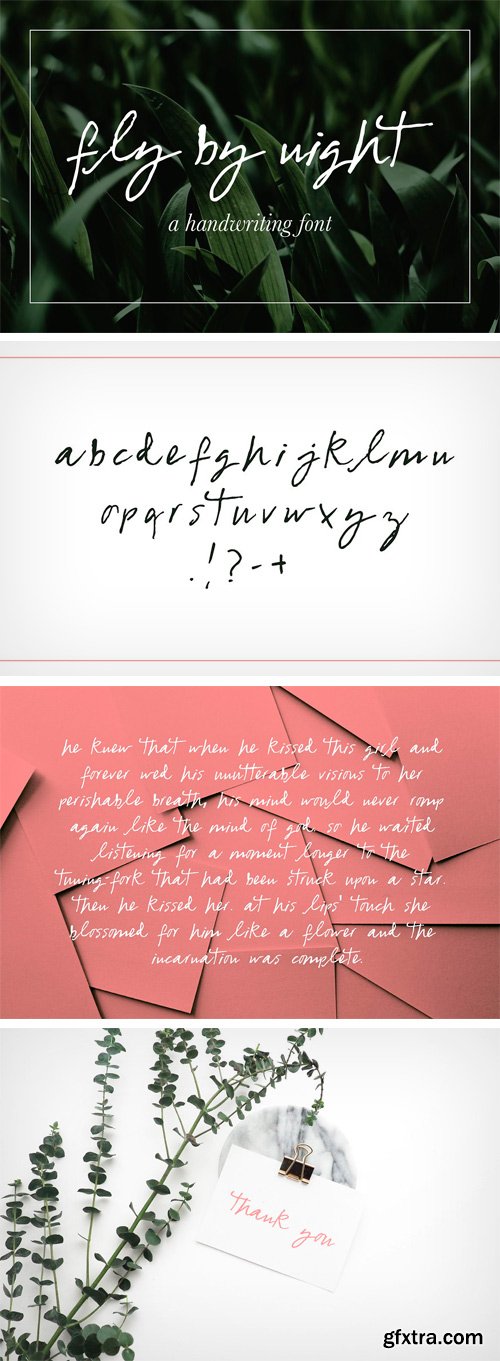 fly by night
a handwriting font
a b c d e f g h i j k l m n
o p q r s t u v w x y z
. ! ? - +
he knew that when he kissed this girl, and
forever wed his unutterable visions to her
perishable breath, his mind would never romp
again like the mind of god. so he waited
listening for a moment longer to the
tuning-fork that had been struck upon a star.
Then he kissed her. at his lips' touch she
blossomed for him like a flower and the
incarnation was complete.
thank you
gfxtra.com